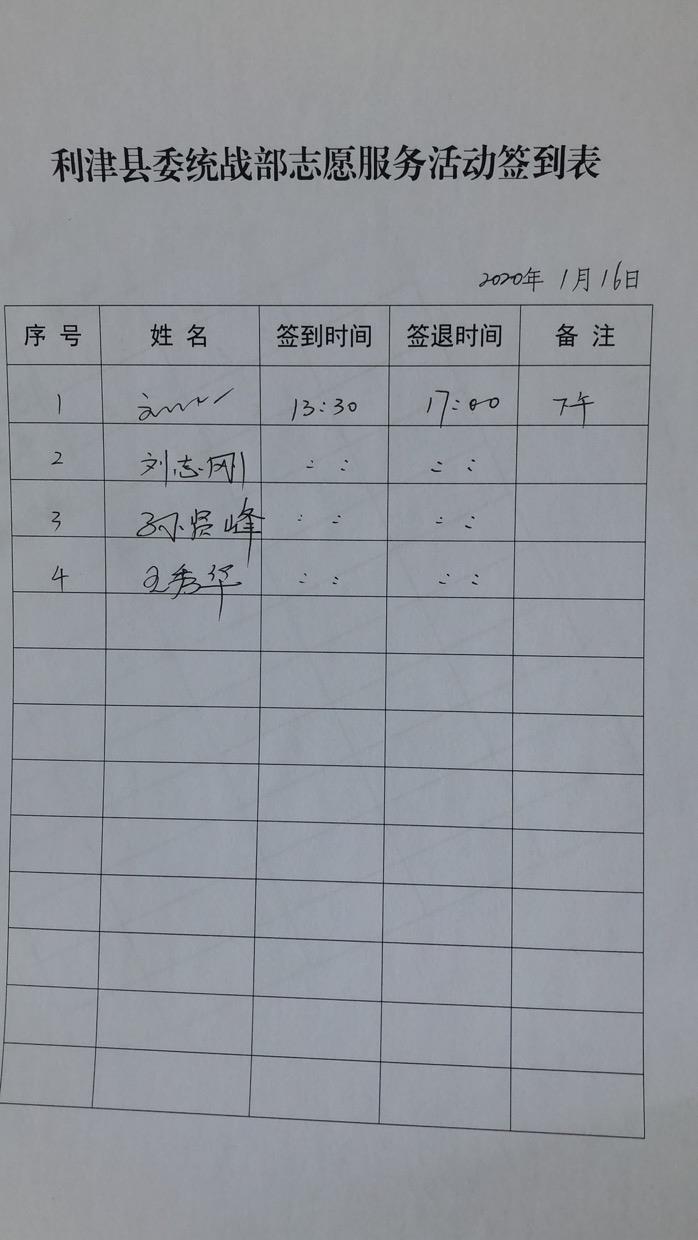 利津县委统战部志愿服务活动签到表
2020年 1月16日
序号 姓名 签到时间 签退时间 备注
1 13:30 17:00 下午
2 刘志刚 : : : :
3 孙贤峰 : : : :
4 王秀华 : : : :